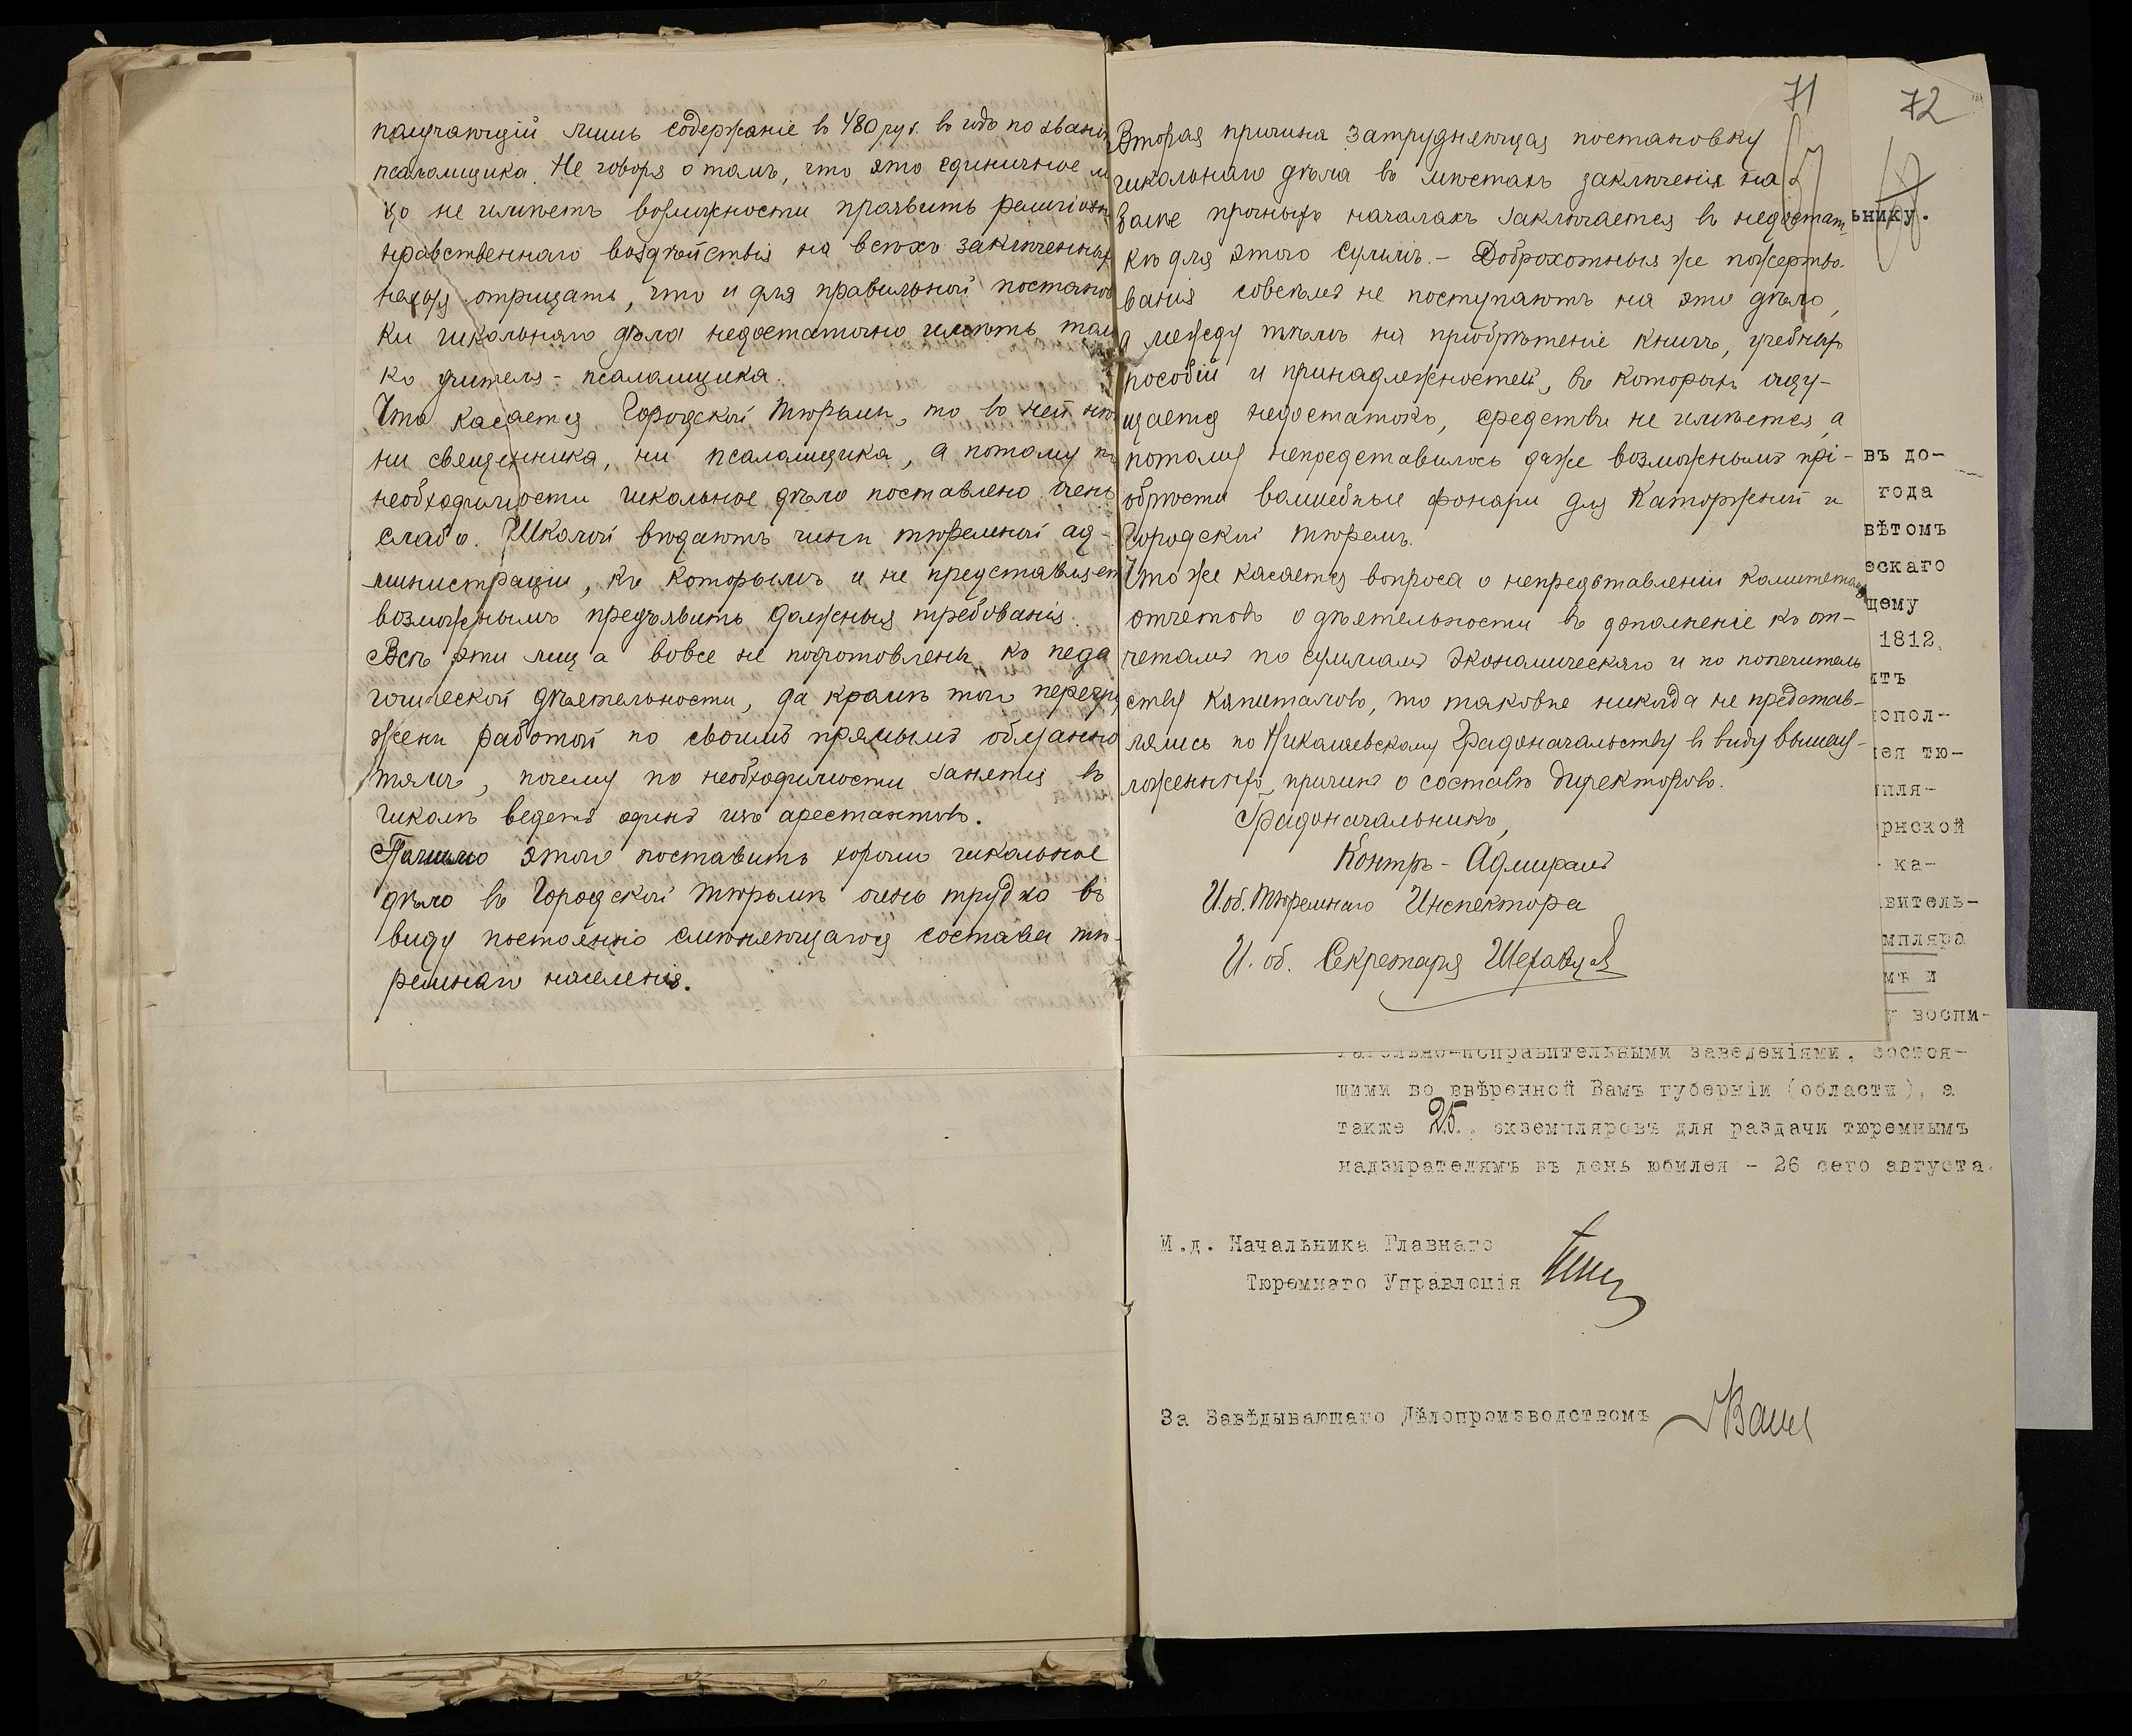 получающій лишь содержаніе въ 480 руб. въ годъ по званію
псаломщика. Не говоря о томъ, что это единичное ли
цо не имѣетъ возможности проявить религіозно
нравственнаго воздѣйствія на всѣхъ заключенныхъ
нельзя отрицать, что и для правильной постанов
ки школьнаго дѣла недостаточно имѣть толь
ко учителя-псаломщика.
Что касается Городской тюрьмы, то въ ней нѣтъ
ни священника, ни псаломщика, а потому по
необходимости школьное дѣло поставлено очень
слабо. Школой вѣдаютъ чины тюремной ад-
министраціи, къ которымъ и не представляет
возможнымъ предъявить должныя требованія.
Всѣ эти лица вовсе не подготовлены къ педа
гогической дѣятельности, да кромѣ того перегру
жены работой по своимъ прямымъ обязанно
тямъ, почему по необходимости занятія въ
школѣ ведетъ одинъ изъ арестантовъ.
Помимо этого поставить хорошо школьное
дѣло въ Городской тюрьмѣ очень трудно въ
виду постоянно смѣняющагося состава тю-
ремнаго населенія.
71
Вторая причина затрудняющая постановку
школьнаго дѣла въ мѣстахъ заключенія на
болѣе прочныхъ началахъ заключается въ недостат-
кѣ для этого суммъ. - Доброхотныя же пожертво-
ванія совсѣмъ не поступаютъ на это дѣло,
а между тѣмъ на пріобрѣтеніе книгъ, учебныхъ
пособій и принадлежностей, въ которыхъ ощу-
щается недостатокъ, средствъ не имѣется, а
потому непредставилось даже возможнымъ прі-
обрѣсти волшебные фонари для Каторжной и
Городской тюремъ.
Что же касается вопроса о непредставленіи комитетомъ
отчетовъ о дѣятельности въ дополненіе къ от-
четамъ по суммамъ экономическаго и по попечитель
ству капиталовъ, то таковые никогда не представ-
лялись по Николаевскому Градоначальству въ виду вышеиз-
ложенныхъ причинъ о составѣ директоровъ.
Градоначальникъ,
Контръ-Адмиралъ
И. об. Тюремнаго Инспектора
И. об. Секретаря
72
ьнику.
въ до-
года
вѣтомъ
ескаго
щему
1812.
итъ
опол-
ея тю-
пля-
рнской
ка-
витель-
мпляра
мъ и
у воспи-
тательно-исправительными заведеніями, состоя-
щими во ввѣренной Вамъ губерніи (области), а
также 25. экземпляровъ для раздачи тюремнымъ
надзирателямъ въ день юбилея - 26 сего августа.
И.д. Начальника Главнаго
Тюремнаго Управленія
За Завѣдывающаго Дѣлопроизводствомъ